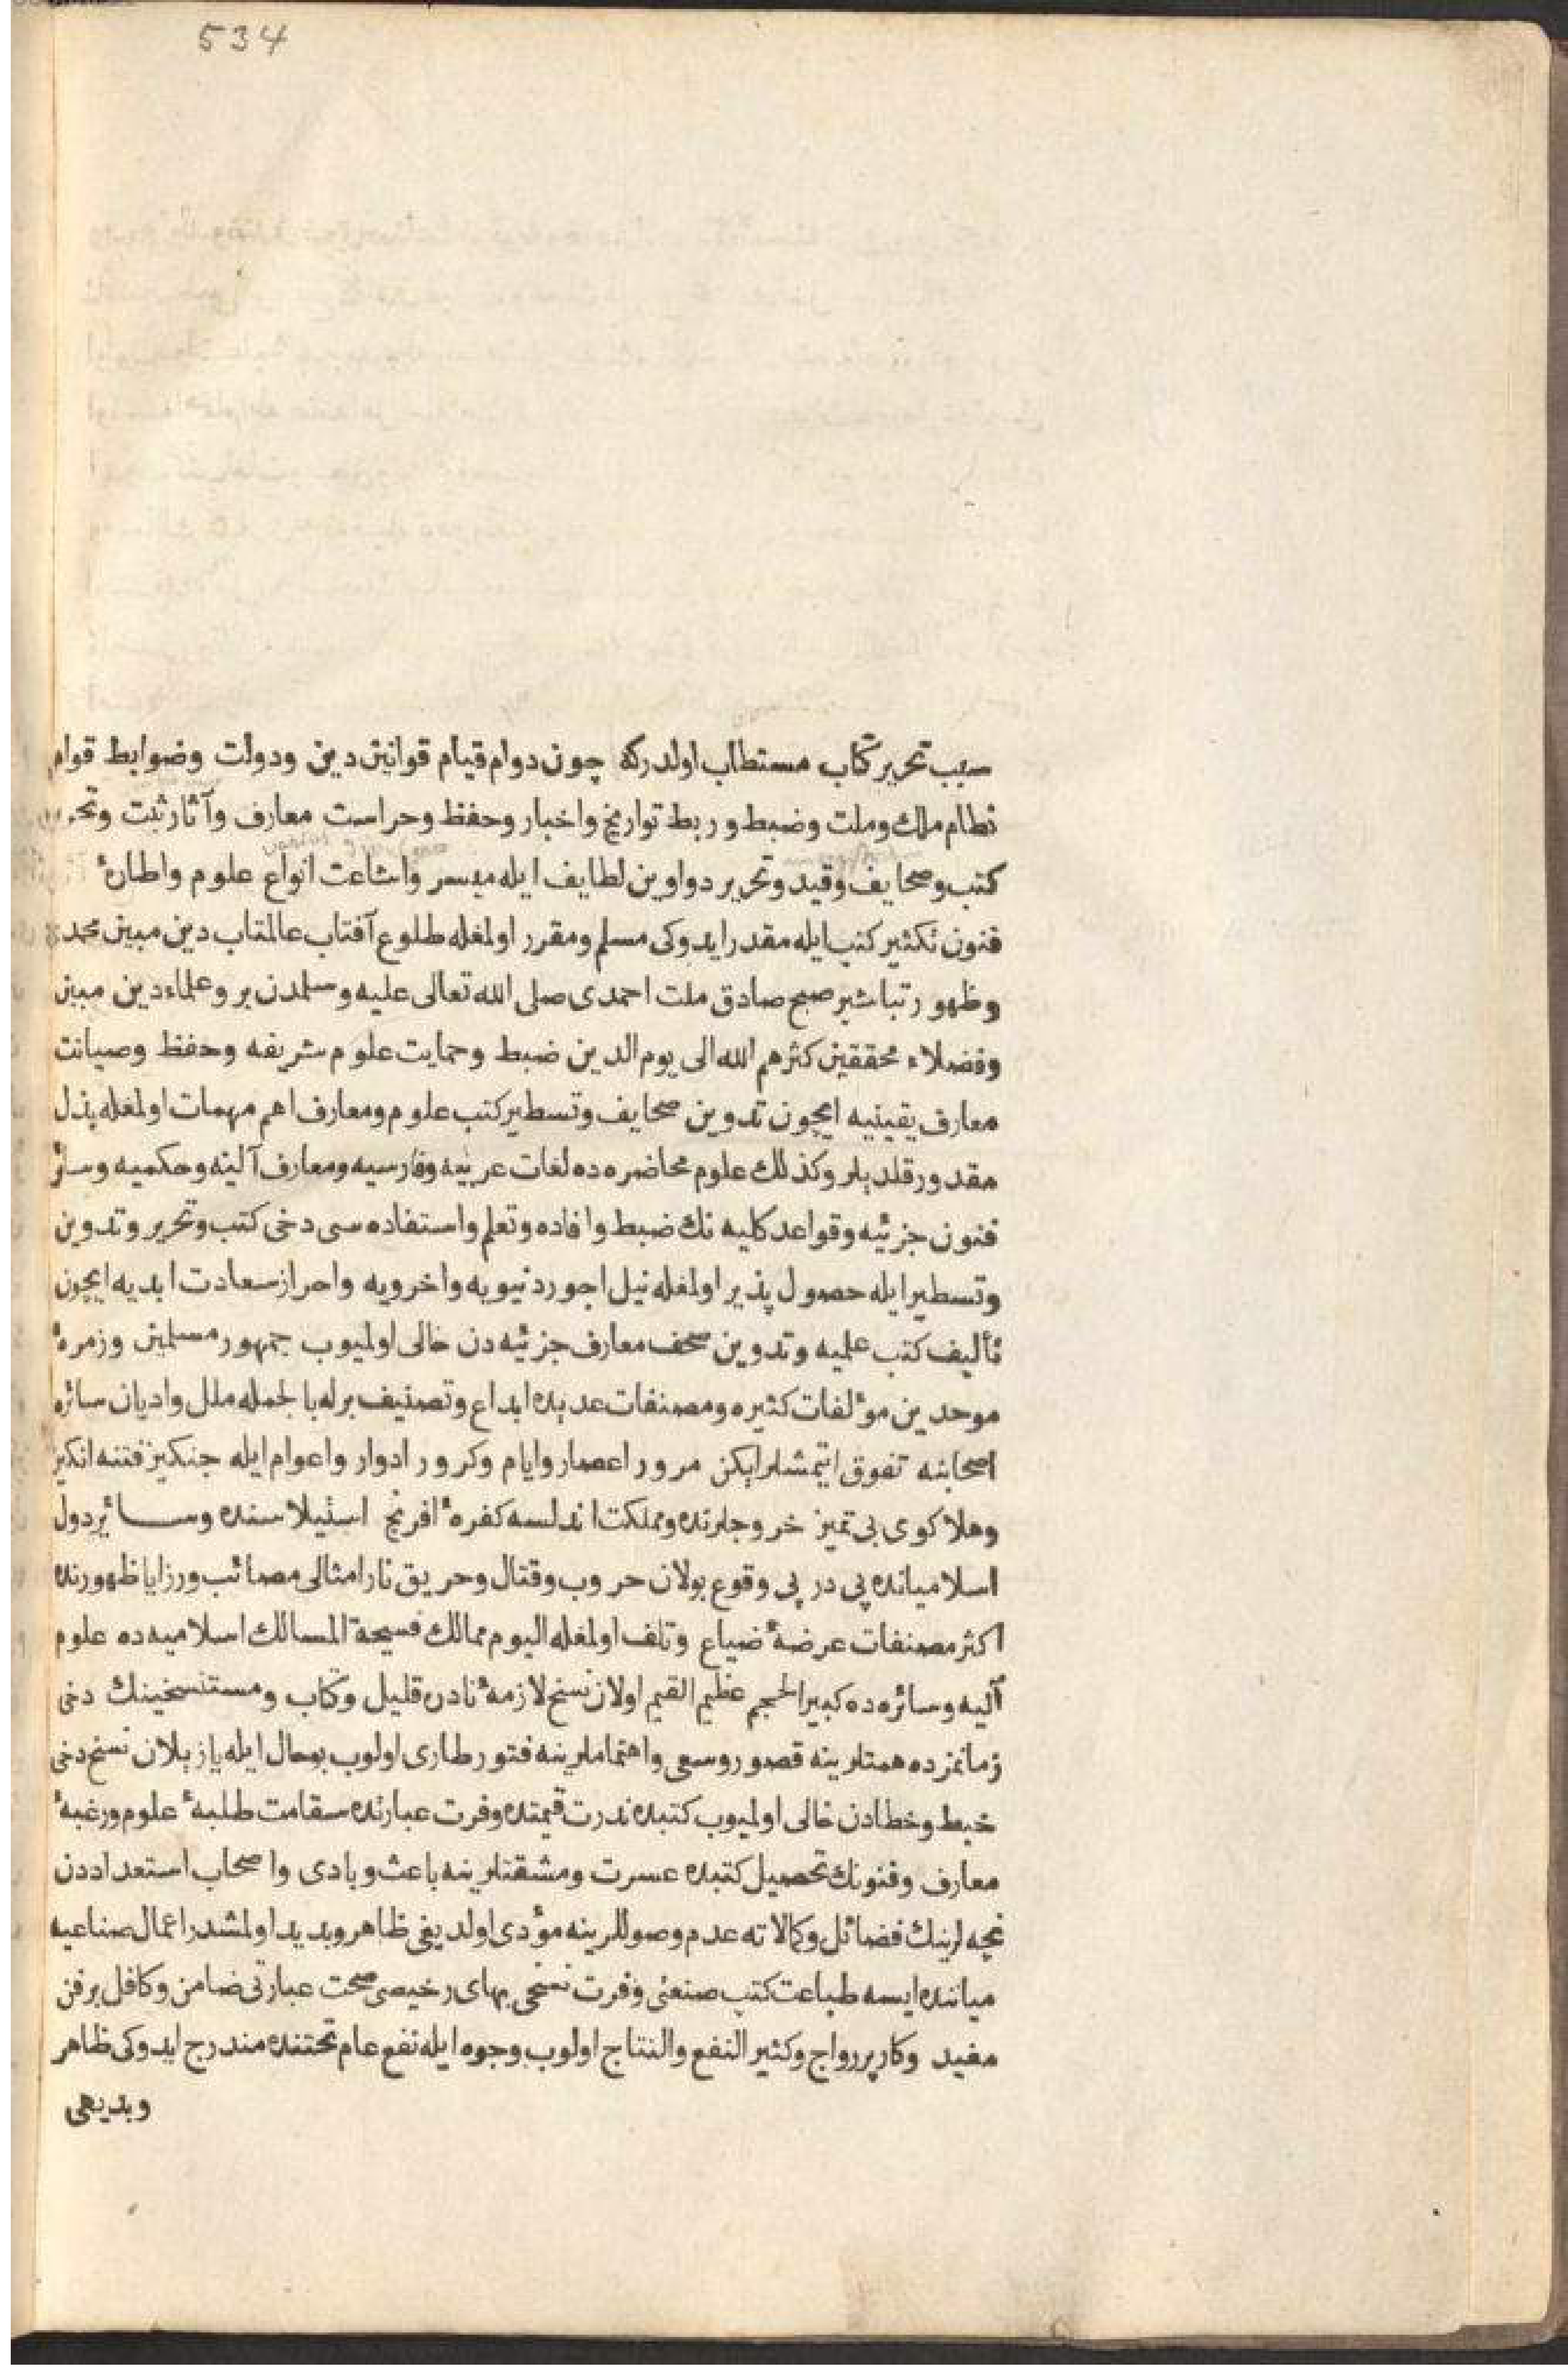 534
سبب تحریر کتاب مستطاب اولدرکه چون دوام قیام قوانین دین ودولت وضوابط قوام
نظام ملك وملت وضبط وربط تواریخ واخبار وحفظ وحراست معارف وآثار ثبت
کتب وصحایف وقید وتحریر دواوین لطایف ایله میسر واشاعت انواع علوم
فنون تکثیر کتب ایله مقدر ایدوکی مسلم ومقرر اولمغله طلوع آفتاب عالمتاب دین مبین محمدی
وظهور تباشیر صبح صادق ملت احمدی صلی الله تعالی علیه وسلمدن برو علماء دین مبین
وفضلاء محققین کثرهم الله الی یوم الدین ضبط وحمایت علوم شریفه وحفظ وصیانت
معارف یقینیه ایچون تدوین صحایف وتسطیر کتب علوم ومعارف اهم مهمات اولمغله بذل
مقدور قلدیلر وکذلك علوم محاضره ده لغات عربیه وفارسیه ومعارف آلیه وحکمیه وسائر
فنون جزئیه وقواعد کلیه نك ضبط وافاده وتعلم واستفاده سی دخی کتب وتحریر وتدوین
وتسطیر ایله حصول پذیر اولمغله نیل اجور دنیویه واخرویه واحراز سعادت ابدیه ایچون
تألیف کتب علمیه وتدوین صحف معارف جزئیه دن خالی اولمیوب جمهور مسلمین وزمرهٔ
موحدین مؤلفات کثیره ومصنفات عدیده ابداع وتصنیف برله بالجمله ملل وادیان سائره
اصحابنه تفوق ایتمشلر ایکن مرور اعصار وایام وکرور ادوار واعوام ایله جنکیز فتنه انکیز
وهلاکوی بی تمیز خروجلرنده ومملکت اندلسه کفرهٔ افرنج استیلاسنده وسائیر دول
اسلامیانده پی در پی وقوع بولان حروب وقتال وحریق نار امثالی مصائب ورزایا ظهورنده
اکثر مصنفات عرضهٔ ضیاع وتلف اولمغله الیوم ممالك فسیحة المسالك اسلامیه ده علوم
آلیه وسائره ده کبیر الحجم عظیم القیم اولان نسخ لازمهٔ نادره قلیل وکتاب ومستنسخینك دخی
زمانمزده همتلرینه قصور وسعی واهتماملرینه فتور طاری اولوب بوحال ایله یازیلان نسخ دخی
خبط وخطادن خالی اولمیوب کتبده ندرت قیمتده وفرت عبارتده سقامت طلبهٔ علوم ورغبهٔ
معارف وفنونك تحصیل کتبده عسرت ومشقتلرینه باعث وبادی واصحاب استعداددن
نچه لرینك فضائل وکمالاته عدم وصوللرینه مؤدی اولدیغی ظاهر وبدید اولمشدر اعمال صناعیه
میاننده ایسه طباعت کتب صنعتی وفرت نسخی بهای رخیصی صحت عبارتی ضامن وکافل بر فن
مفید وکار پررواج وکثیر النفع والنتاج اولوب وجوه ایله نفع عام تحتنده مندرج ایدوکی ظاهر
وبدیهی